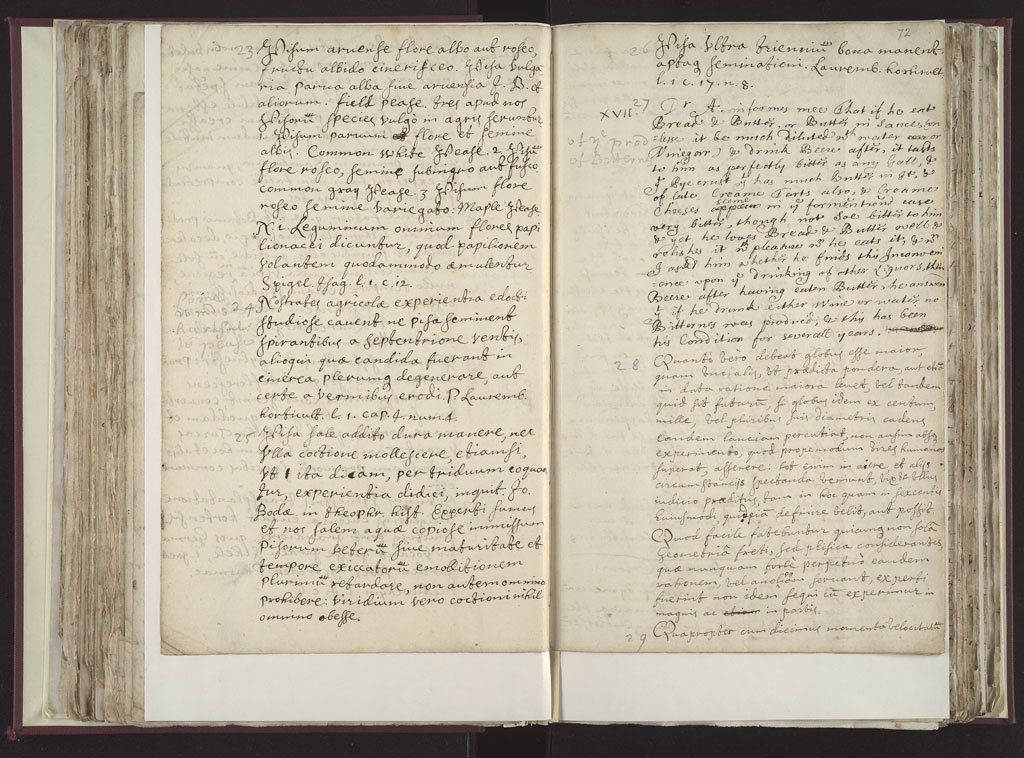 23
Pisum arvense flore albo aut roseo,
fructu albido cinerisceo. Pisa vulga
ria parva alba sive arvensia J. B. et
aliorum. field pease. tres apud nos
Pisorū species vulgò in agris seruntur
1. Pisum parvum flore et semine
albis. Common White Pease. 2 Pisū
flore roseo, semine subnigro aut fusco
common gray Pease. 3 Pisum flore
roseo semine variegato: Maple Pease.
N. i. Leguminum omnium flores papi
lionacei dicuntur, quod papilionem
volantem quodammodo æmulentur
Spigel. Isag. l. 1. c. 12.
24
Nostrates agricolæ experientia edocti
studiose cavent ne pisa seminent
spirantibus a septentrione ventis,
alioqui quæ candida fuerant in
cinerea plerumq degenerare, aut
certe a vermibus erodi. P. Lauremb.
horticult. l. 1. cap. 4. num. 4
25
Pisa sale addito dura manere, nec
ulla coctione mollescere, etiamsi,
ut ita dicam, per triduum coquan
tur, experientia didici, inquit Jo.
Bodæ. in theophr. hist. Experti sumus
et nos salem aquæ copiose immissum
pisorum veterū sive maturitate et
tempore exiccatorū emollitionem
plurimū retardare, non autem omnino
prohibere: viridium vero coctioni nihil
omnino obesse.
72
26
Pisa ultra trienniū bona manent
aptaq seminationi. Lauremb. horticult
l. 1 c. 17. n. 8.
XVII
27
Dr. A. informes mee That if he eat
Bread & Butter, or Butter in Sauces, (un
lesse it be much diluted wth water or
Vinegar) & drink Beere after, it tasts
to him as perfectly bitter as any Gall, &
yt Pye crust yt has much Butter in it, &
of late, Creame Tarts also, & Creame
Cheeses seeme in ye formention'd case
very bitter, though not soe bitter to him
& yet he loves Bread & Butter well &
relishes it wth pleasure wn he eats it, & wn
I askt him whether he finds this Inconveni
=ence upon ye drinking of other Liquors, then
Beere after having eaten Butter, he answerd
yt if he drunk either Wine or water, no
Bitternes was produced, & this has been
his Condition for severall years.
28
Quantò vero debeat globus esse maior,
quam uncialis, ut prædicta pondera, aut etiā
in data ratione maiora levet, vel tandem
quid sit futurū, si globus idem ex centum,
mille, vel pluribus suis diametris cadens
eandem lanciam percutiat, non ausim absq
experimento, quod propemodum vires humanas
superat, asserere: tot enim in aëre et aliis
circumstantijs spectanda veniunt, vix ut ullus
iudicio præditus, tam in hoc quam in sexcentis
huiusmodi, quippiā definire velit, aut possit.
Quod facile fatebuntur quicunq non solâ
Geometriâ freti, sed physica considerantes
quæ nunquam forte perpetuo eandem
rationem, vel analogiam servant, experti
fuerint non idem sequi cū experimur in
magnis ac in parvis.
29
Quapropter cum dicimus momenta velocitatū